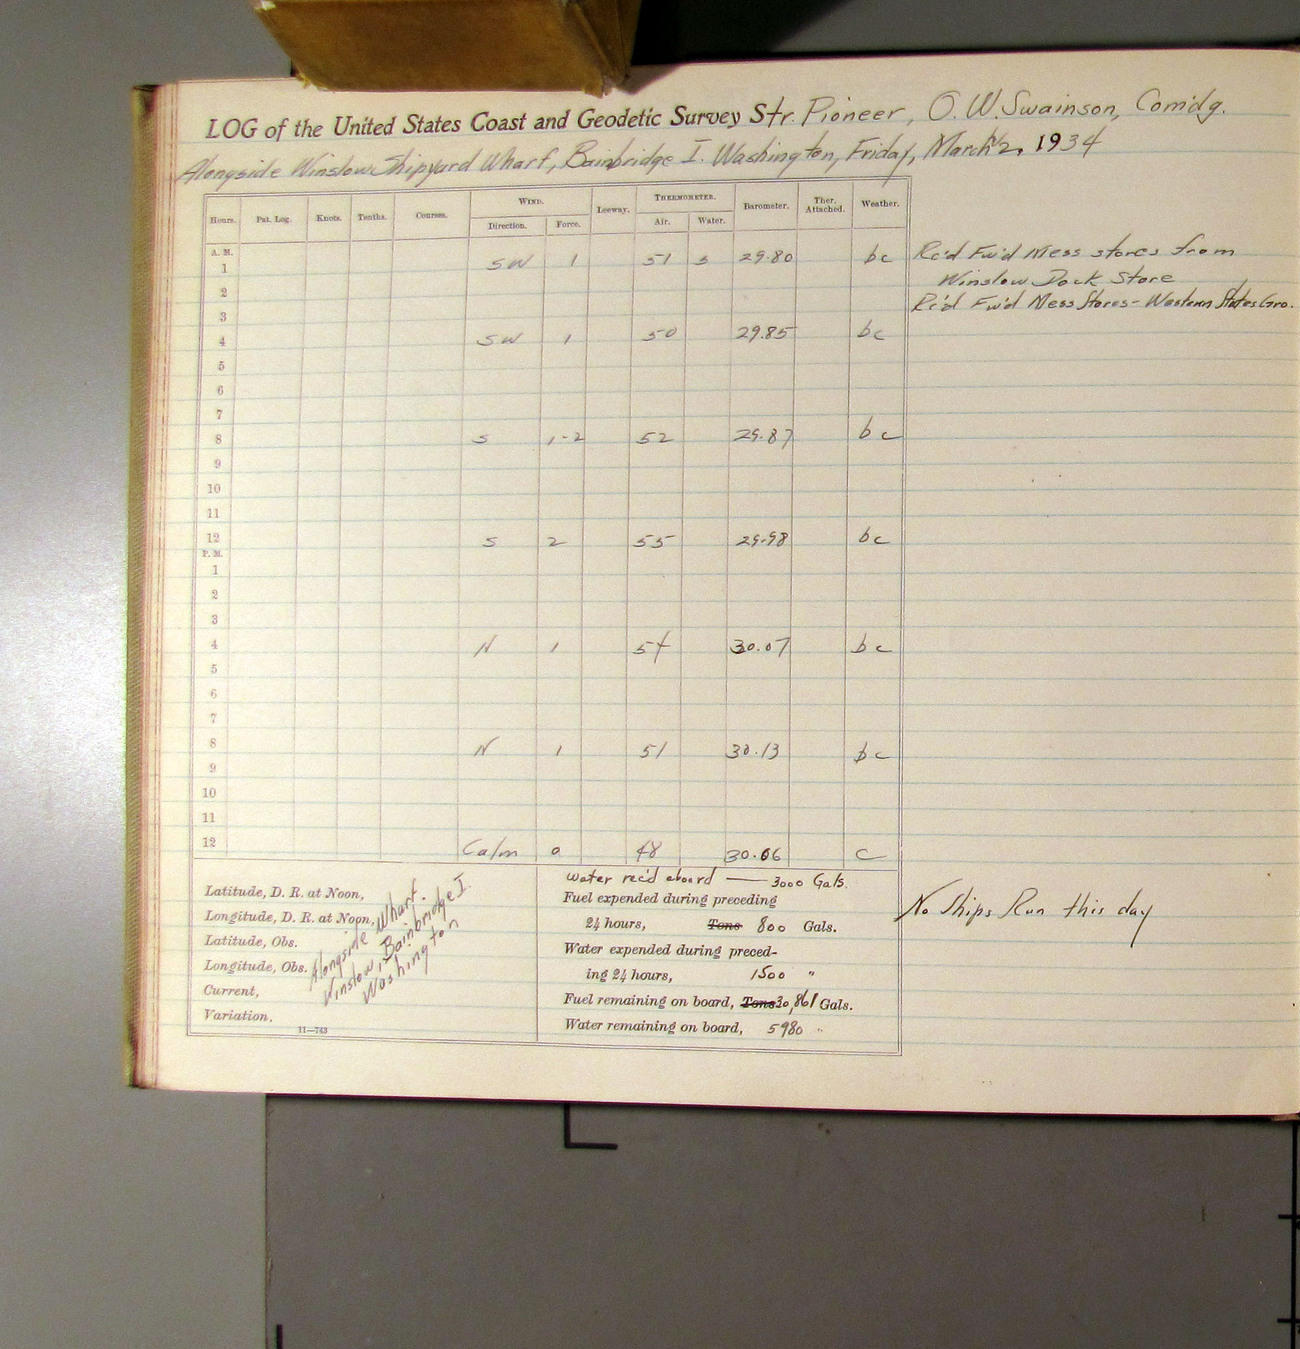 LOG of the United States Coast and Geodetic Survey Str. Pioneer, O. W. Swainson, Com'dg.
Alongside Winslow Shipyard Wharf, Bainbridge I. Washington, Friday, March 2, 1934
Hours. Pat. Log. Knots. Tenths. Courses. WIND. Leeway. THERMOMETER. Barometer. Ther. Attached. Weather.
Direction. Force. Air. Water.
A. M.
1 SW 1 51 s 29.80 bc Rc'd Fw'd Mess stores from
2 Winslow Dock Store
3 Rc'd Fw'd Mess Stores - Western States Gro.
4 SW 1 50 29.85 bc
5
6
7
8 S 1-2 52 29.87 bc
9
10
11
12 S 2 55 29.98 bc
P. M.
1
2
3
4 N 1 54 30.07 bc
5
6
7
8 N 1 51 30.13 bc
9
10
11
12 Calm 0 48 30.06 c
Latitude, D. R. at Noon,
Longitude, D. R. at Noon,
Latitude, Obs.
Longitude, Obs.
Current,
Variation.
Alongside Wharf.
Winslow, Bainbridge I.
Washington
11—743
Water rec'd aboard — 3000 Gals.
Fuel expended during preceding
24 hours, Tons 800 Gals.
Water expended during preced-
ing 24 hours, 1500 "
Fuel remaining on board, Tons 30,861 Gals.
Water remaining on board, 5980 "
No Ships Run this day